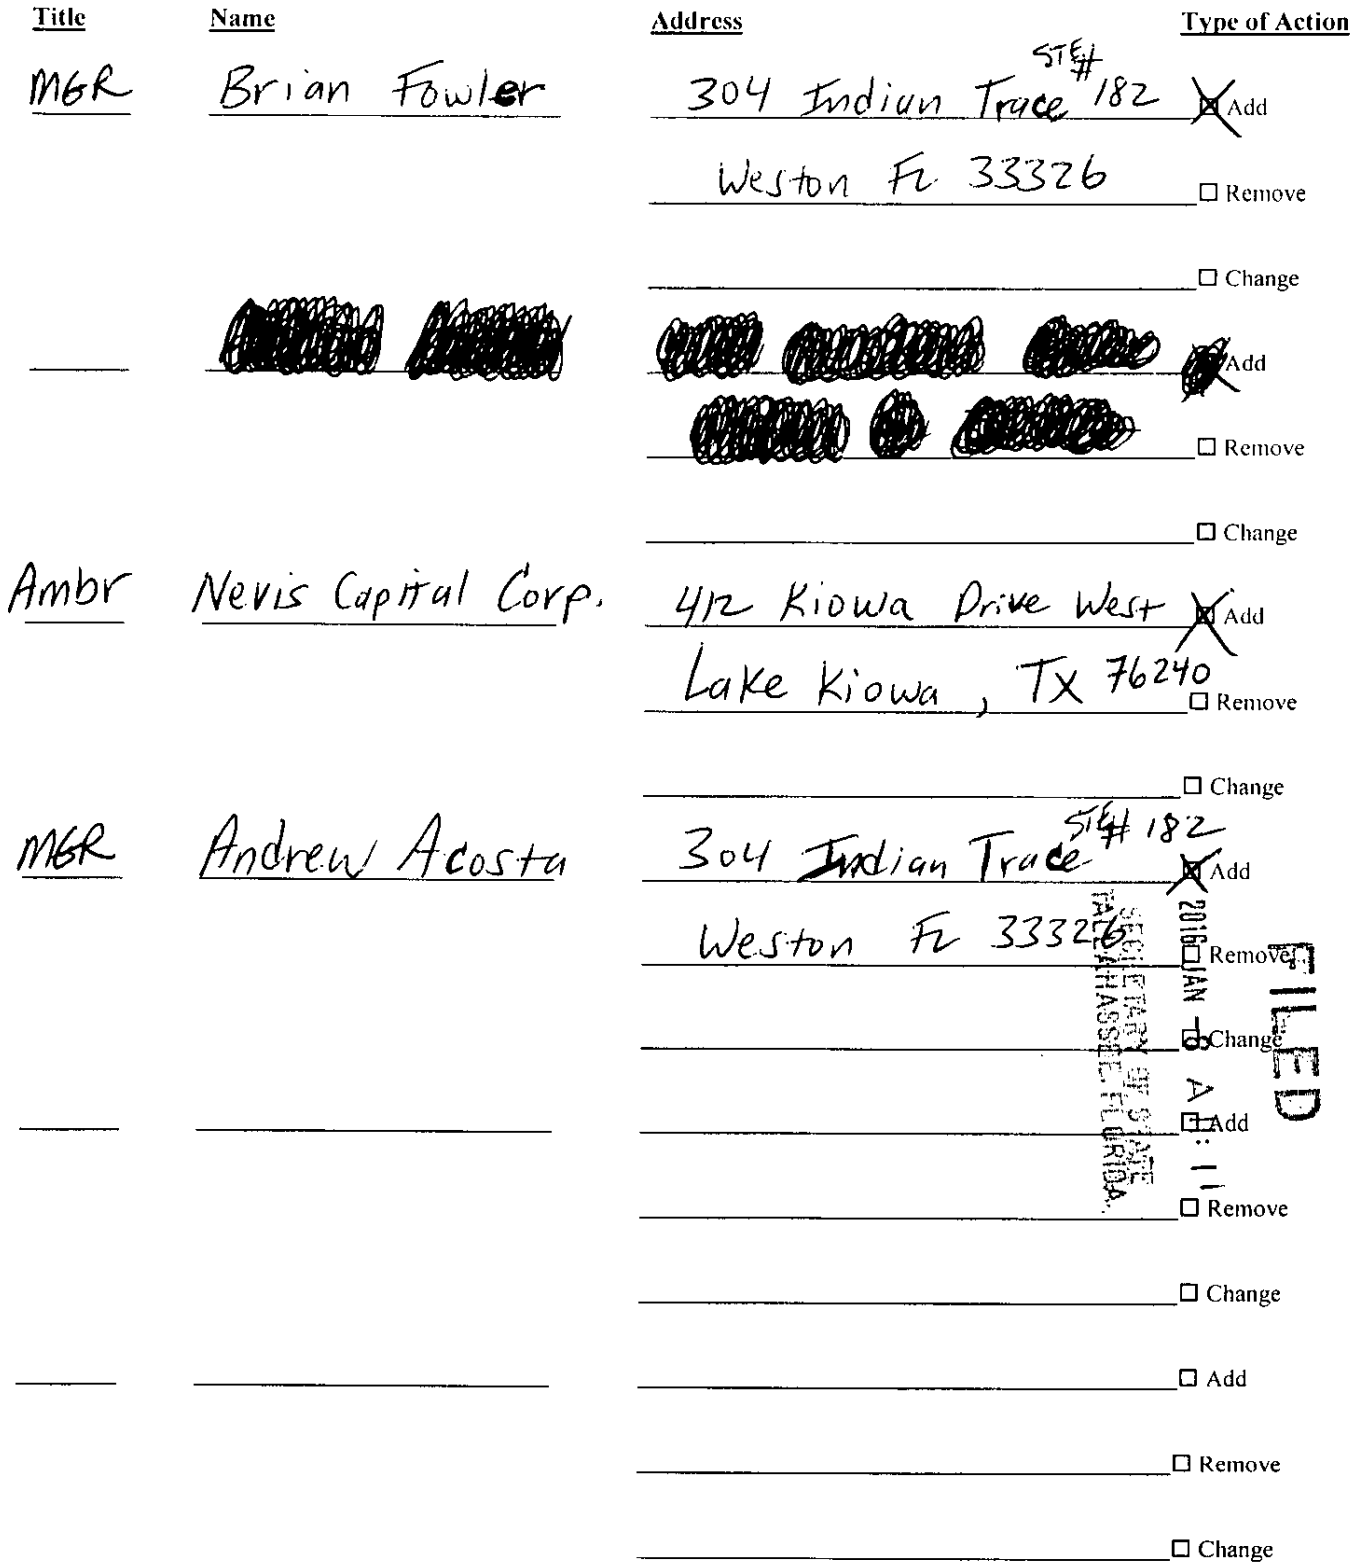 Title Name Address Type of Action
MGR Brian Fowler 304 Indian Trace STE# 182 Add
Weston FL 33326 Remove
Change
Add
Remove
Change
Ambr Nevis Capital Corp. 412 Kiowa Drive West Add
Lake Kiowa, TX 76240 Remove
Change
MGR Andrew Acosta 304 Indian Trace STE# 182 Add
Weston FL 33326 Remove
Change
Add
Remove
Change
Add
Remove
Change
FILED
2016 JAN
SECRETARY OF STATE
TALLAHASSEE, FLORIDA